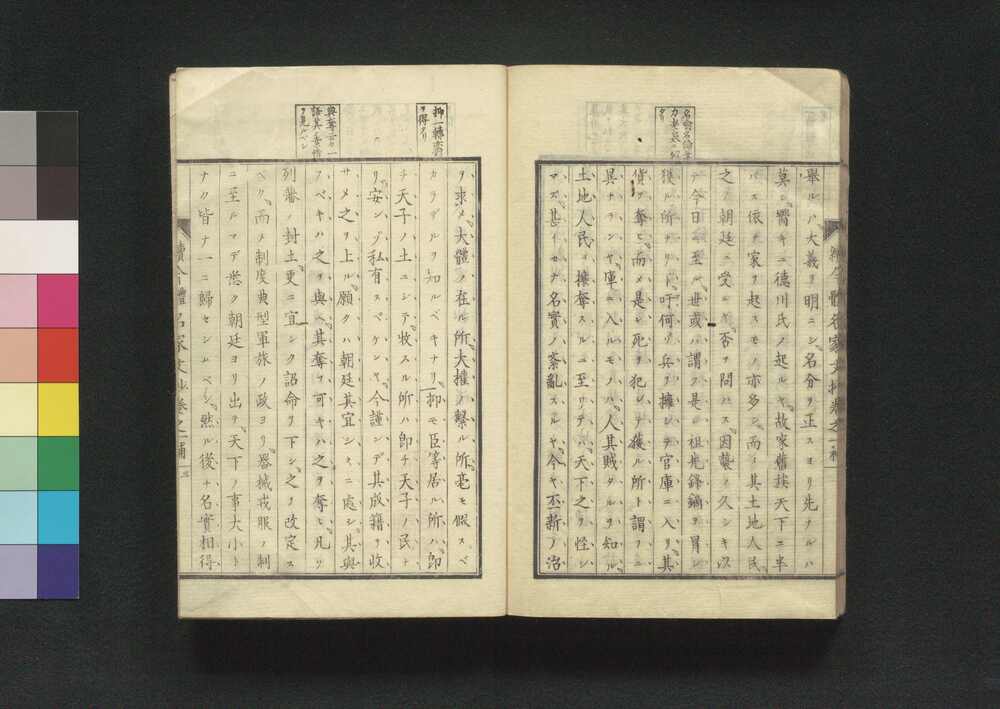 舉ルハ大義ヲ明ニシ名分ヲ正スヨリ先ナルハ
莫シ嚮キニ德川氏ノ起ルヤ故家舊族天下ニ半
ハス依テ家ヲ起スモノ亦多シ而メ其土地人民
之ヲ朝廷ニ受ルヤ否ヲ問ハス因襲ノ久シキ以
テ今日ニ至ル世或ハ謂フ是レ祖先鋒鏑ヲ冒シ
獲ル所ナリト吁何ソ兵ヲ擁シテ官庫ニ入リ其
貨ヲ奪ヒ而メ是レ死ヲ犯シテ獲ル所ト謂フニ
異ナランヤ庫ニ入ルモノハ人其賊タルヲ知ル
土地人民ヲ攘奪スルニ至リテハ天下之ヲ怪シ
マズ甚イカナ名實ノ紊亂スルヤ今ヤ丕新ノ治
抑一轉齊
ヲ得タリ
與奪云々一
語其ノ委情
ヲ見ルベシ
ヲ求メ大體ノ在ル所大權ノ繋ル所毫モ假スベ
カラザルヲ知ルベキナリ抑モ臣等居ル所ハ卽
チ天子ノ土ニシテ牧スル所ハ卽チ天子ノ民ナ
リ安ンゾ私有スベケンヤ今謹ンデ其版籍ヲ收
サメ之ヲ上ル願クハ朝廷其宜シキニ處シ其與
フベキハ之ヲ與ヘ其奪フ可キハ之ヲ奪ヒ凡ソ
列藩ノ封土更ニ宜シク詔命ヲ下シ之ヲ改定ス
ベク而メ制度典型軍旅ノ政ヨリ器械戎服ノ制
ニ至ルマデ悉ク朝廷ヨリ出テ天下ノ事大小ト
ナク皆ナ一ニ歸セシムベシ然ル後ナ名實相得
續今體名家文抄卷之一補 三